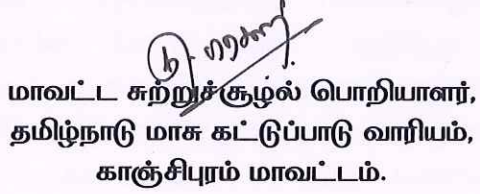 மாவட்ட சுற்றுச்சூழல் பொறியாளர்,
தமிழ்நாடு மாசு கட்டுப்பாடு வாரியம்,
காஞ்சிபுரம் மாவட்டம்.